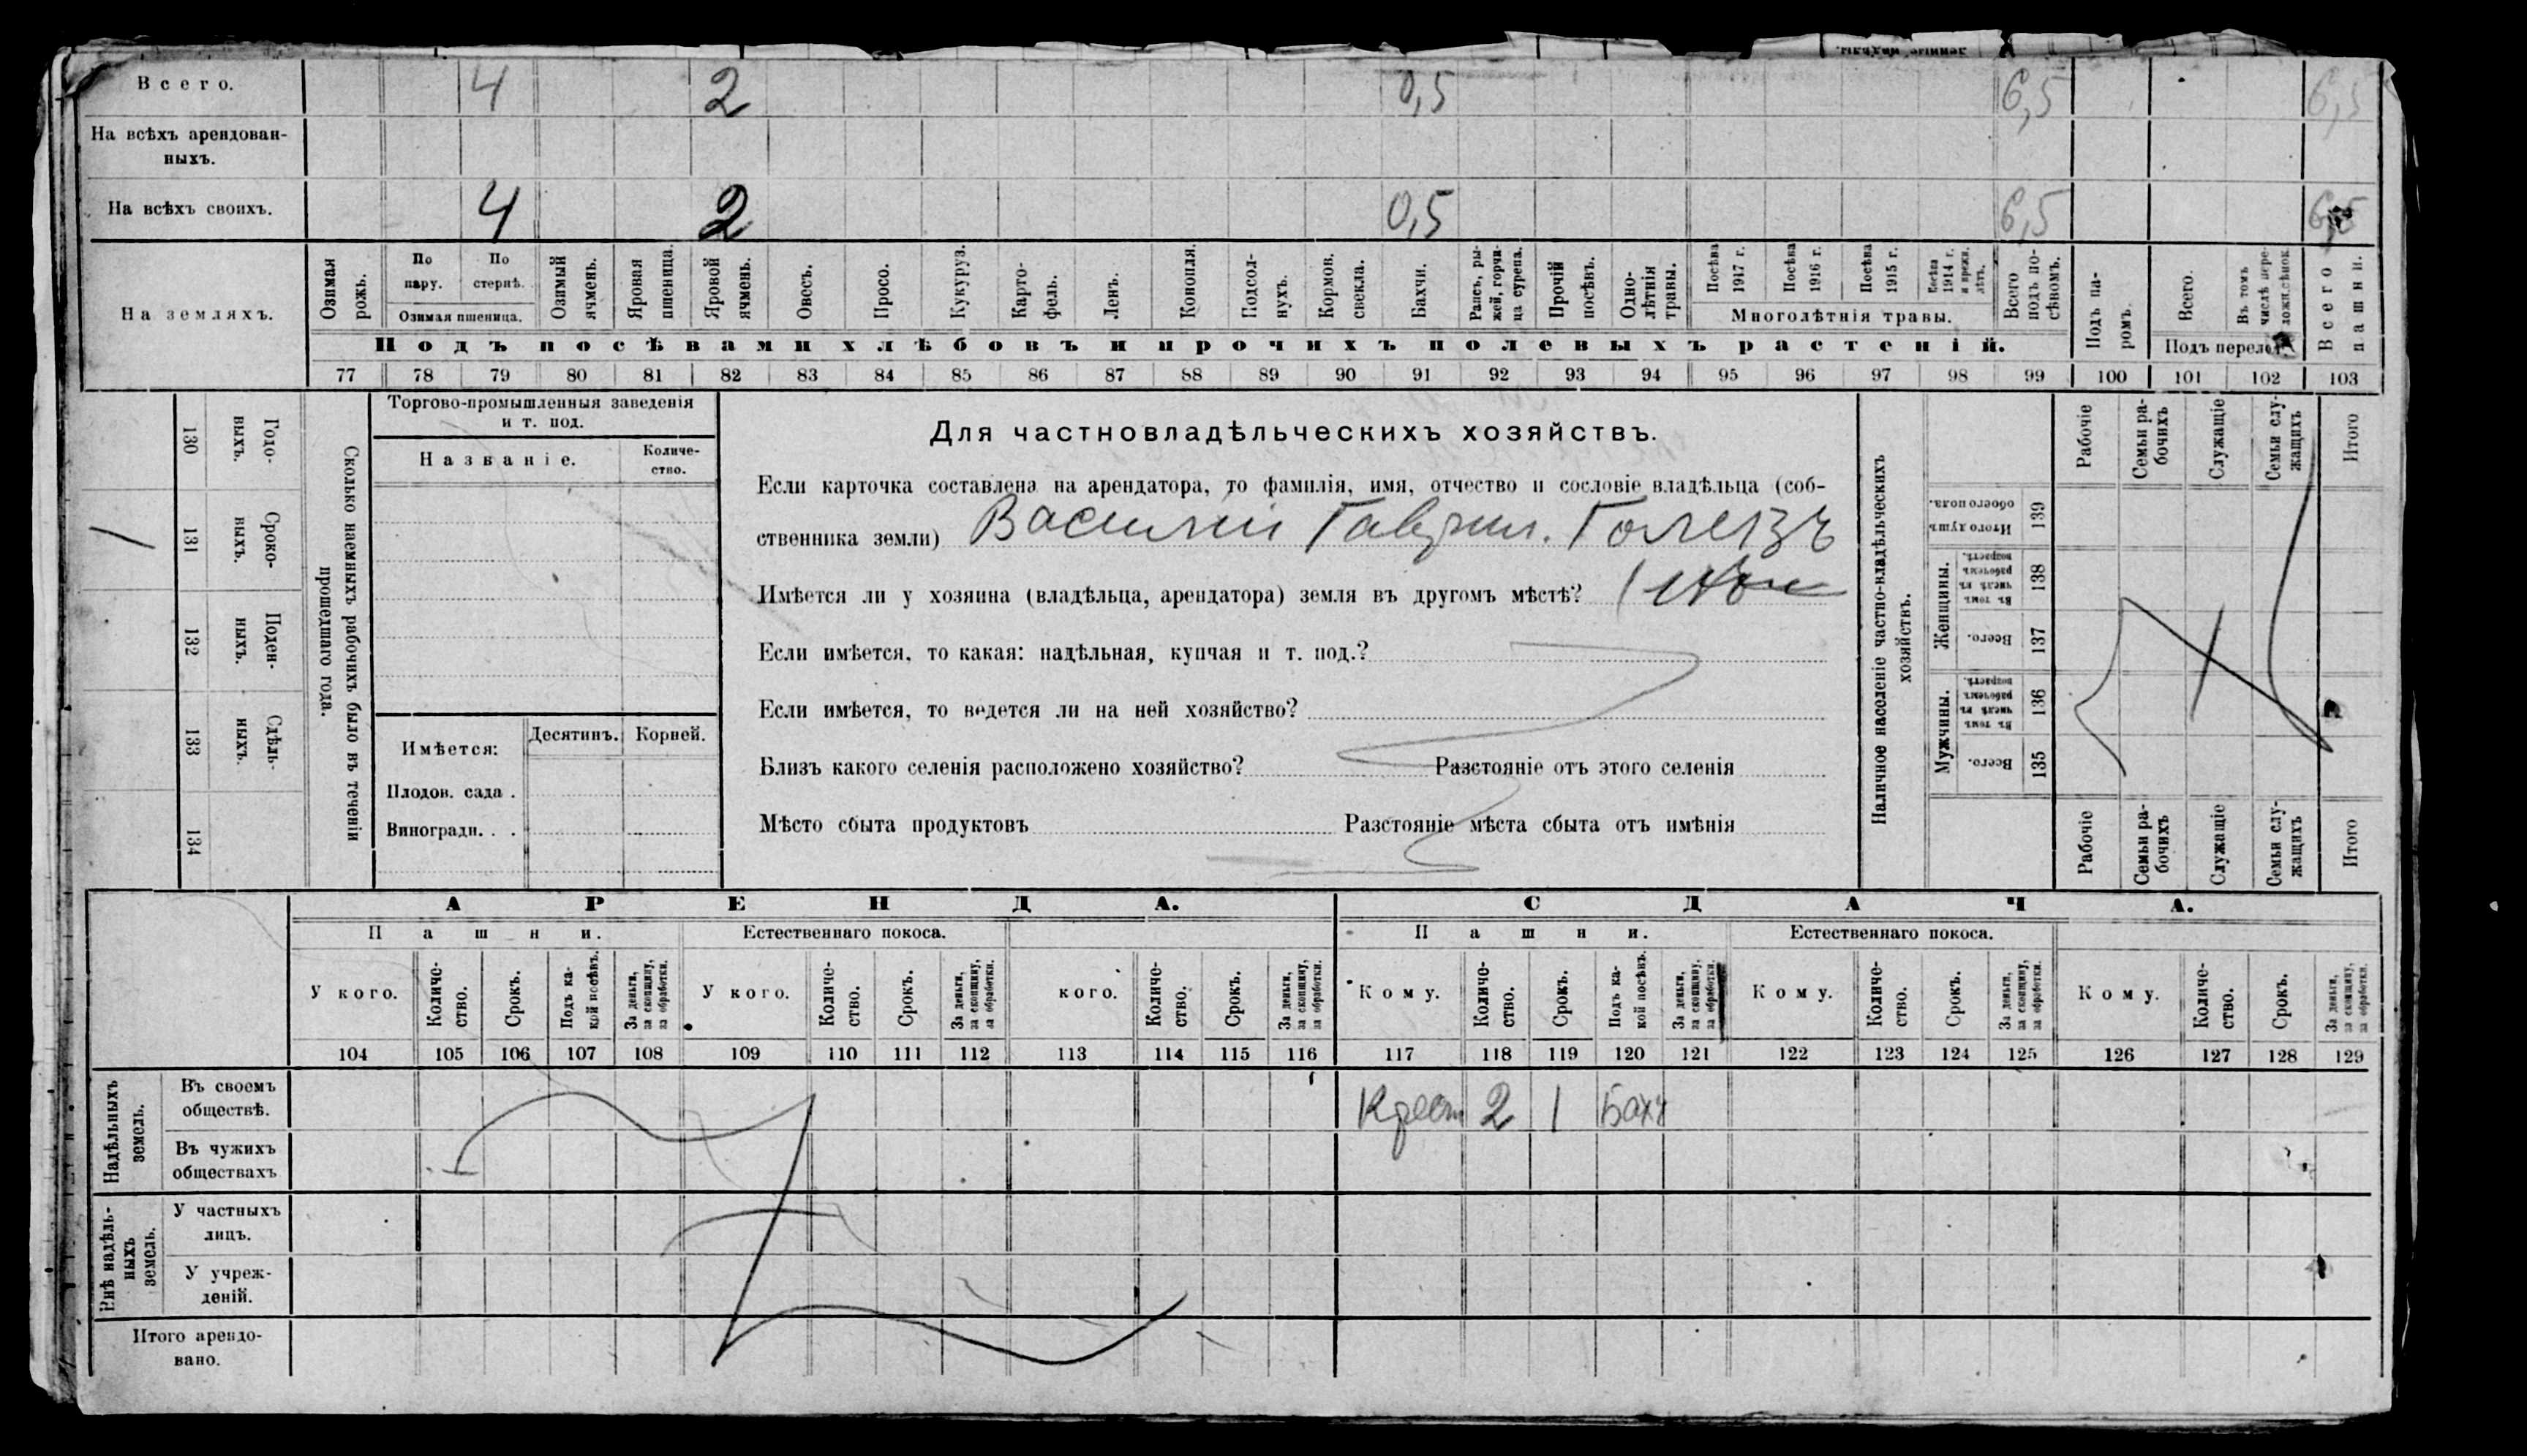 Всего. 4 2 0,5 6,5 6,5
На всѣхъ арендован-
ныхъ.
На всѣхъ своихъ. 4 2 0,5 6,5
На земляхъ.
Озимая рожь.
По пару.
По стернѣ.
Озимая пшеница.
Озимый ячмень.
Яровая пшеница.
Яровой ячмень.
Овесъ.
Просо.
Кукуруз.
Карто-
фель.
Ленъ.
Конопля.
Подсол-
нухъ.
Кормов.
свекла.
Бахчи.
Рапсъ, ры-
жей, горчи-
ца сурепа.
Прочій
посѣвъ.
Одно-
лѣтнія
травы.
Посѣва 1917 г.
Посѣва 1916 г.
Посѣва 1915 г.
Посѣва 1914 г. и прежн. лѣтъ.
Многолѣтнія травы.
Всего
подъ по-
сѣвомъ.
Подъ па-
ромъ.
Всего.
Въ томъ
числѣ пере-
Подъ перел
Всего
пашни.
Подъ посѣвами хлѣбовъ и прочихъ полевыхъ растеній.
77 78 79 80 81 82 83 84 85 86 87 88 89 90 91 92 93 94 95 96 97 98 99 100 101 102 103
130 Годо-
выхъ.
131 Сроко-
выхъ.
132 Поден-
ныхъ.
133 Сдѣль-
ныхъ.
134
Сколько наемныхъ рабочихъ было въ теченіи
прошедшаго года.
Торгово-промышленныя заведенія
и т. под.
Названіе.
Количе-
ство.
Имѣется:
Десятинъ. Корней.
Плодов. сада .
Виноградн. . .
Для частновладѣльческихъ хозяйствъ.
Если карточка составлена на арендатора, то фамилія, имя, отчество и сословіе владѣльца (соб-
ственника земли) Василій Гаврил.
Имѣется ли у хозяина (владѣльца, арендатора) земля въ другомъ мѣстѣ?
Если имѣется, то какая: надѣльная, купчая и т. под.?
Если имѣется, то ведется ли на ней хозяйство?
Близъ какого селенія расположено хозяйство? Разстояніе отъ этого селенія
Мѣсто сбыта продуктовъ Разстояніе мѣста сбыта отъ имѣнія
Наличное населеніе частно-владѣльческихъ
хозяйствъ.
Рабочіе
Семьи ра-
бочихъ
Служащіе
Семьи слу-
жащихъ
Итого
Итого душъ
обоего пола. 139
Женщины.
Въ томъ числѣ въ рабочемъ возрастѣ. 138
Всего. 137
Мужчины.
Въ томъ числѣ въ рабочемъ возрастѣ. 136
Всего. 135
Рабочіе
Семьи ра-
бочихъ
Служащіе
Семьи слу-
жащихъ
Итого
АРЕНДА. СДАЧА.
Пашни. Естественнаго покоса. Пашни. Естественнаго покоса.
У кого.
Количе-
ство.
Срокъ.
Подъ ка-
кой посѣвъ.
За деньги,
за скопщину,
за обработки.
У кого.
Количе-
ство.
Срокъ.
За деньги,
за скопщину,
за обработки.
кого.
Количе-
ство.
Срокъ.
За деньги,
за скопщину,
за обработки.
Кому.
Количе-
ство.
Срокъ.
Подъ ка-
кой посѣвъ.
За деньги,
за скопщину,
за обработки.
Кому.
Количе-
ство.
Срокъ.
За деньги,
за скопщину,
за обработки.
Кому.
Количе-
ство.
Срокъ.
За деньги,
за скопщину,
за обработки.
104 105 106 107 108 109 110 111 112 113 114 115 116 117 118 119 120 121 122 123 124 125 126 127 128 129
Надѣльныхъ
земель.
Въ своемъ
обществѣ. Крест 2 1 Бахч
Въ чужихъ
обществахъ
Внѣ надѣль-
ныхъ
земель.
У частныхъ
лицъ.
У учреж-
деній.
Итого арендо-
вано.